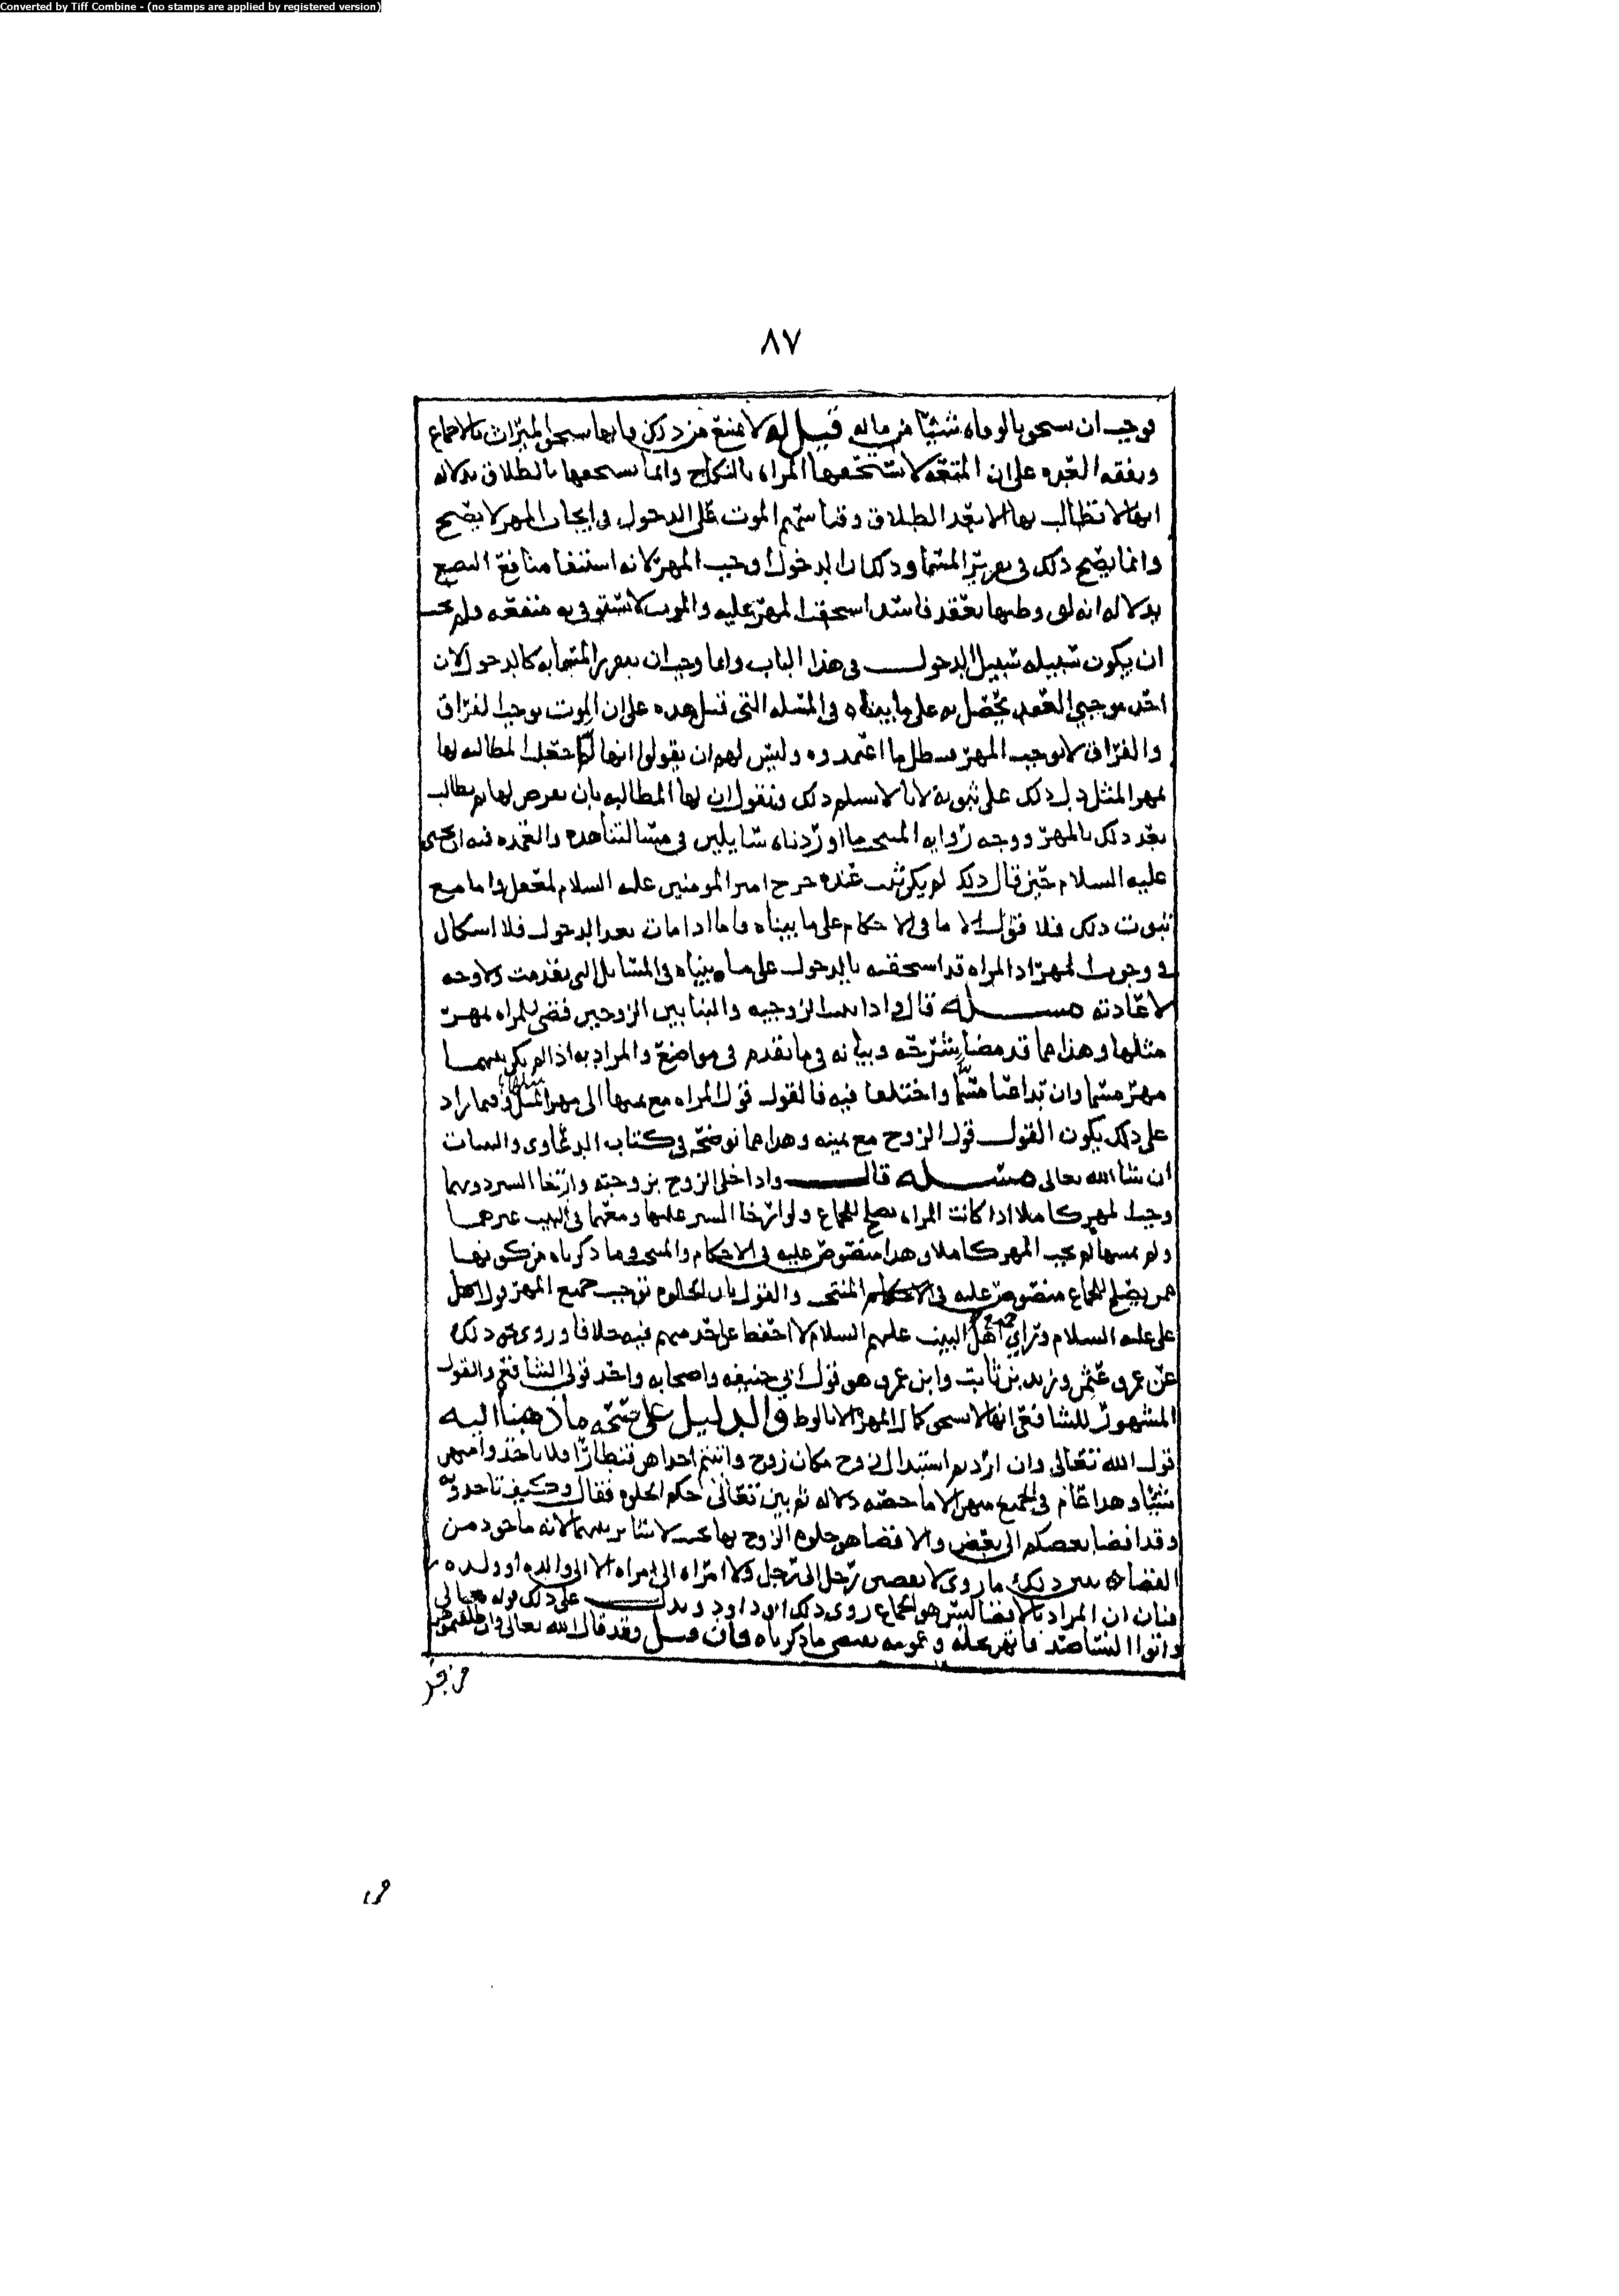 Converted by Tiff Combine - (no stamps are applied by registered version)
٨٧
فوجب ان يستحق بالوفاه شيئا من ماله قيل له لا يمتنع من ذلك فانها تستحق الميراث بالاجماع
العده على ان المتعه لا تستحقها المراه بالنكاح وانما تستحقها بالطلاق بدلاله
انها لا تطالب بها الا بعد الطلاق وقياسهم الموت على الدخول في ايجاب المهر لا يصح
وانما يصح ذلك في تقرير المسما وذلك ان الدخول اوجب المهر لانه استيفا منافع البضع
بدلاله انه لو وطيها بعقد فاسد استحقت المهر عليه والموت لا تستوفى به منفعه ولم يجب
ان يكون سبيله سبيل الدخول في هذا الباب وانما وجب ان يتقرر المسما به كالدخول لان
احد موجبي العقد يحصل به على ما بيناه في المسله التي قبل هذه على ان الموت يوجب الفراق
والفراق لا يوجب المهر فبطل ما اعتمدوه وليس لهم ان يقولوا انها لما جعلت المطالبه لها
بمهر المثل دل ذلك على ثبوته لانا لا نسلم ذلك ونقول ان لها المطالبه بان يفرض لها ثم يطالب
بعد ذلك بالمهر ووجه روايه المنتخب ما اوردناه سايلين في مسالتنا هذه والعمده فيه ان يحيى
عليه السلام حين قال ذلك لم يكن ثبت عنده خرج امير المومنين عليه السلام لمعقل واما مع
ثبوت ذلك فلا قول الا ما في الاحكام على ما بيناه فاما اذا مات بعد الدخول فلا اشكال
في وجوب المهر اذ المراه قد استحقته بالدخول على ما بيناه في المسائل التي تقدمت ولا وجه
لاعادته مسله قال واذا الزوجيه والبنا بين الزوجين قضي للمراه بمهر
مثلها وهذا مما قد مضا شرحه وبيانه فيما تقدم في مواضع والمراد به اذا لم يكن بينهما
مهر مسما وان تداعيا مسما واختلفا فيه فالقول قول المراه مع يمينها الى مهر مثلها وفيما زاد
على ذلك يكون القول قول الزوج مع يمينه وهذا مما نوضحه في كتاب الدعاوى والبينات
ان شا الله تعالى مسله قال واذا خلى الزوج بزوجته وارخا الستر دونهما
وجب المهر كاملا اذا كانت المراه تصلح للجماع ولو ارخا الستر عليها ومعهما في البيت غيرهما
ولم يمسها لم يجب المهر كاملا وهذا منصوص عليه في الاحكام والمنتخب وما ذكرناه من كونها
ممن يصلح للجماع منصوص عليه في المنتخب والقول بان الخلوه توجب جميع المهر قول
علي عليه السلام وراي اهل البيت عليهم السلام لا احفظ عن احد منهم فيه خلافا وروي نحو ذلك
عن عمر وعثمن وزيد بن ثابت وابن عمر وهو قول ابي حنيفه واصحابه واحد قولي الشافعي والقول
المشهور للشافعي انها لا تستحق كمال المهر الا بالوطء والدليل على صحه ما ذهبنا اليه
قول الله تعالى وان اردتم استبدال زوج مكان زوج واتيتم احداهن قنطارا فلا تاخذوا منهن
شيئا وهذا عام في الجميع منهن الا ما خصه دلاله ثم بين تعالى حكم الخلوه فقال وكيف تاخذونه
وقد افضا بعضكم الى بعض والافضا هو خلوه الزوج بها بحيث لا ساتر بينهما لانه ماخوذ من
الفضا يبين ذلك ما روي لا يفضين رجل الى رجل ولا امراه الى امراه الا الى والده او ولده
فبان ان المراد بالافضا ليس هو الجماع روى ذلك ابو داود ويدل على ذلك قوله تعالى
واتوا النسا صدقاتهن نحله وعمومه يقتضي ما ذكرناه فان قيل وقد قال الله تعالى وان طلقتموهن
من قبل